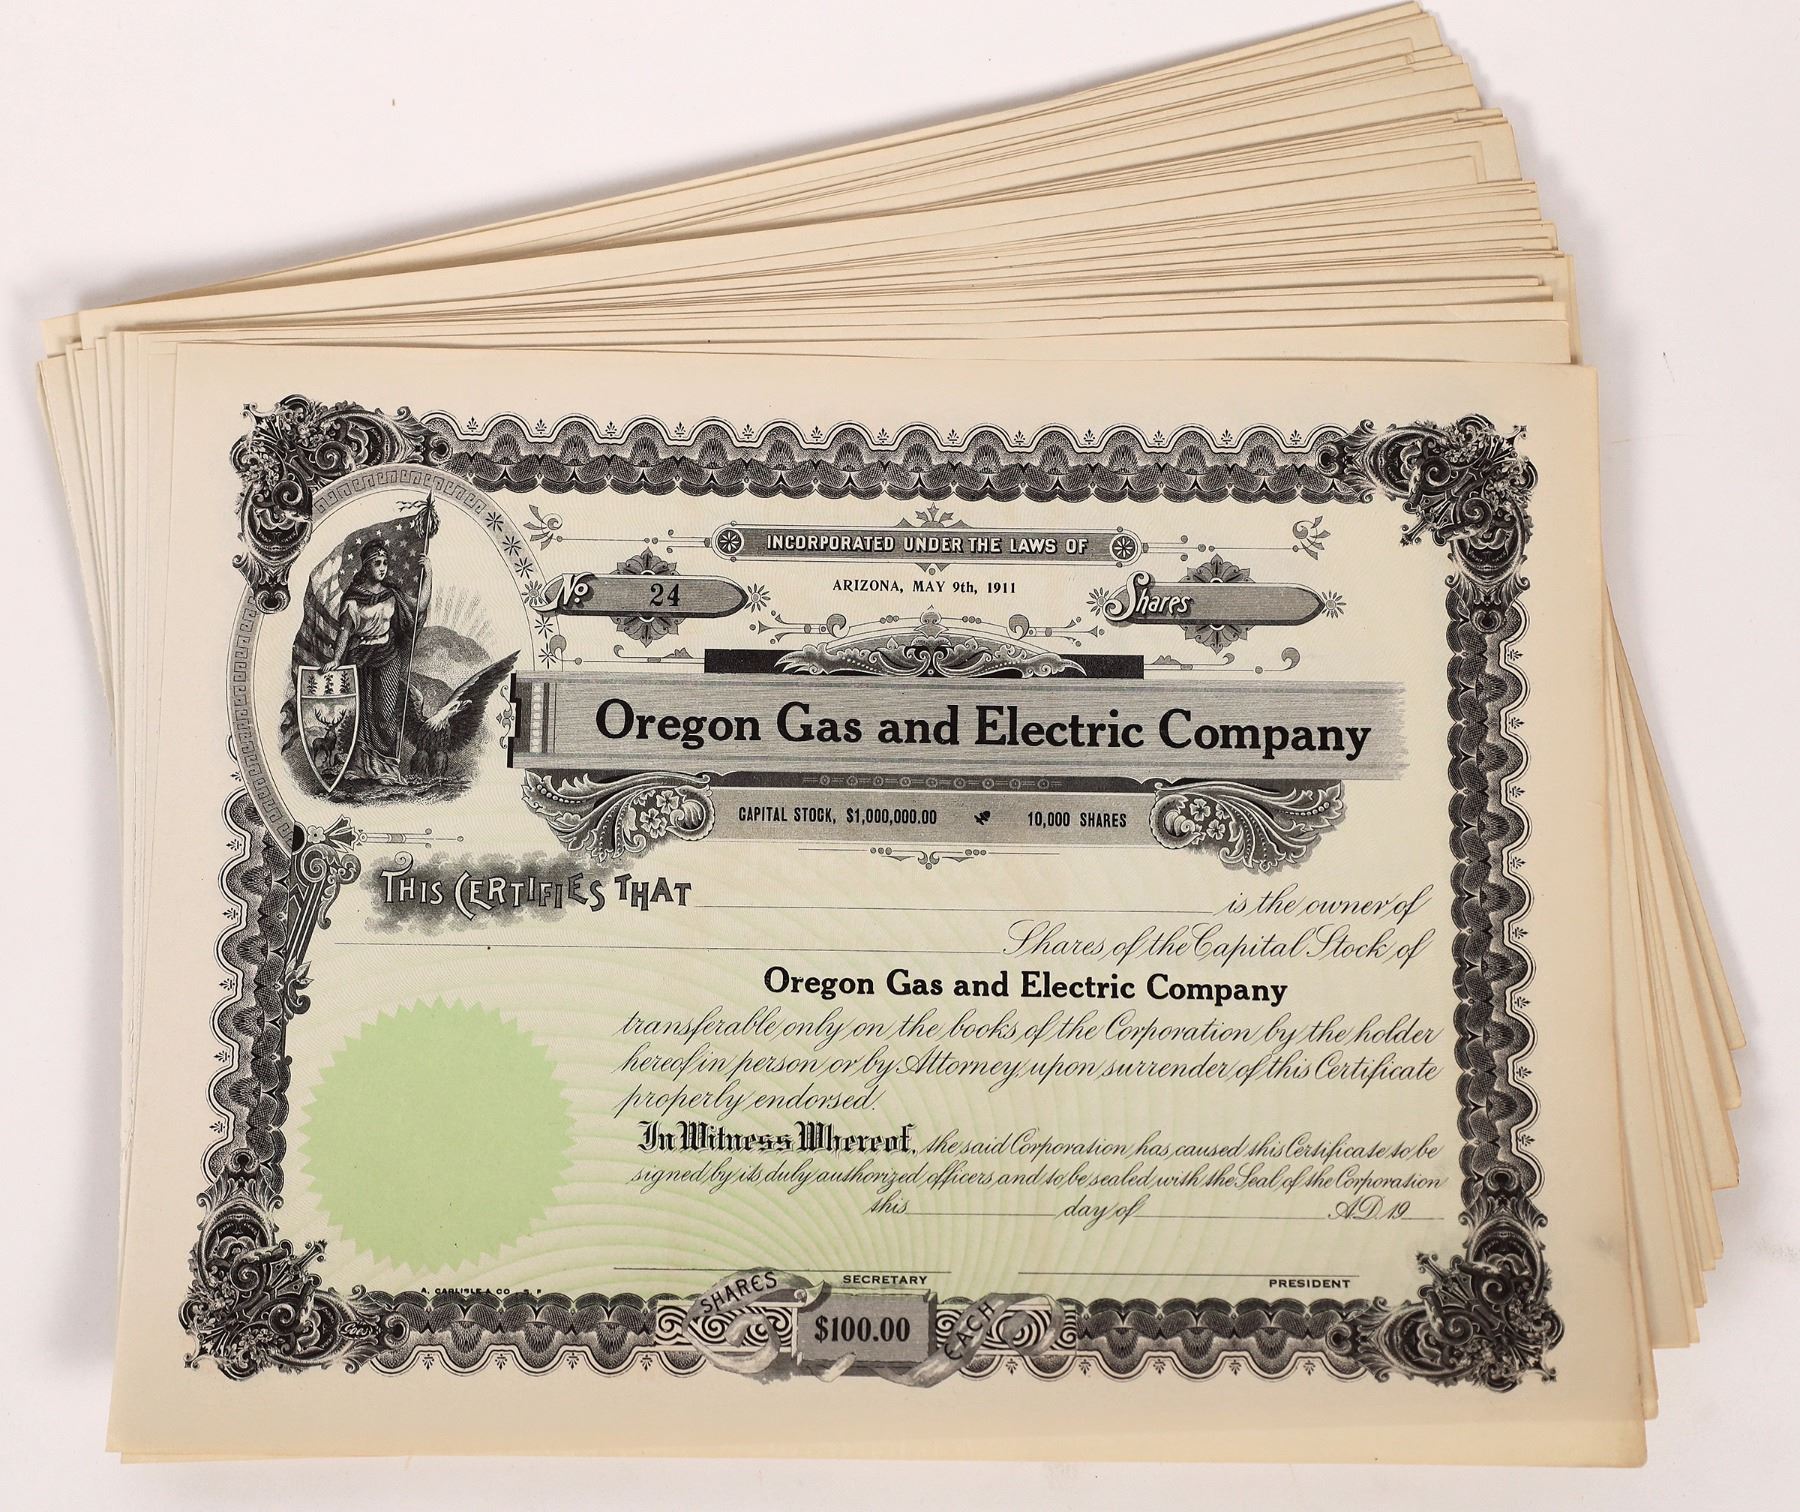 INCORPORATED UNDER THE LAWS OF
No. 24
ARIZONA, MAY 9th, 1911
Shares
Oregon Gas and Electric Company
CAPITAL STOCK, $1,000,000.00 10,000 SHARES
THIS CERTIFIES THAT is the owner of
Shares of the Capital Stock of
Oregon Gas and Electric Company
transferable only on the books of the Corporation by the holder
hereof in person or by Attorney upon surrender of this Certificate
properly endorsed.
In Witness Whereof, the said Corporation has caused this Certificate to be
signed by its duly authorized officers and to be sealed with the Seal of the Corporation
this day of A.D. 19
SECRETARY PRESIDENT
A. CARLISLE & CO., S. F.
SHARES $100.00 EACH